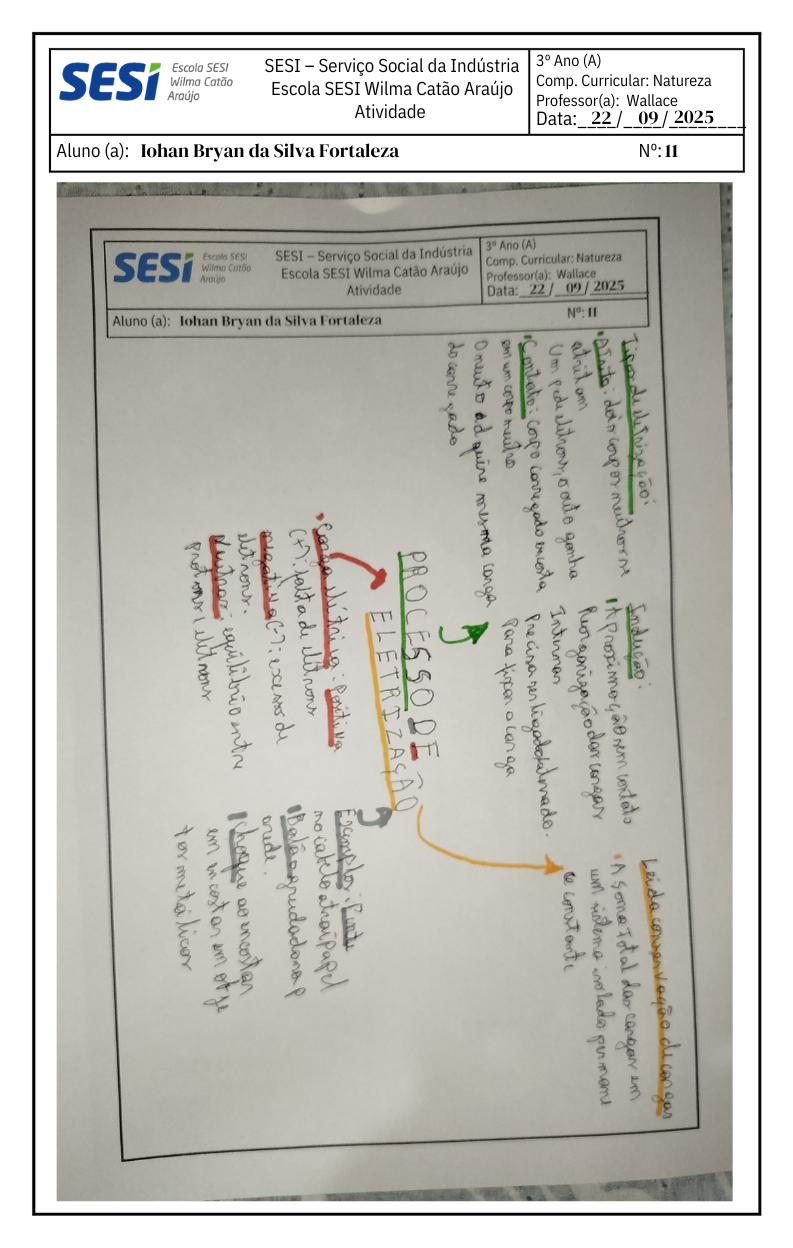 SESI
Escola SESI
Wilma Catão
Araújo
SESI – Serviço Social da Indústria
Escola SESI Wilma Catão Araújo
Atividade
3º Ano (A)
Comp. Curricular: Natureza
Professor(a): Wallace
Data: 22 / 09 / 2025
Aluno (a): Iohan Bryan da Silva Fortaleza
Nº: 11
SESI
Escola SESI
Wilma Catão
Araújo
SESI – Serviço Social da Indústria
Escola SESI Wilma Catão Araújo
Atividade
3º Ano (A)
Comp. Curricular: Natureza
Professor(a): Wallace
Data: 22 / 09 / 2025
Aluno (a): Iohan Bryan da Silva Fortaleza
Nº: 11
Tipos de eletrização:
Atrito: dois corpos neutros se
atritam
Um pede elétrons, o outo ganha
Contato: corpo carregado encosta
em um corpo neutro
O neuto adquire mesma carga
do carregado
Indução:
Aproximação sem contato
Reorganização das cargas
Internas
Precisa ser ligado/aterrado.
para fixar a carga
Lei da conservação de cargas
A soma Total das cargas em
um sistema isolado permane
ce constante
PROCESSO DE
ELETRIZAÇÃO
Carga elétrica: Positiva
(+): falta de elétrons
negativa (-): excesso de
elétrons.
Neutros: equilíbrio entre
protons e elétrons
Exemplos: Pente
no cabelo atrai papel
Balão grudado na p
arede.
Choque ao encostar
em encostar em obje
tos metálicos